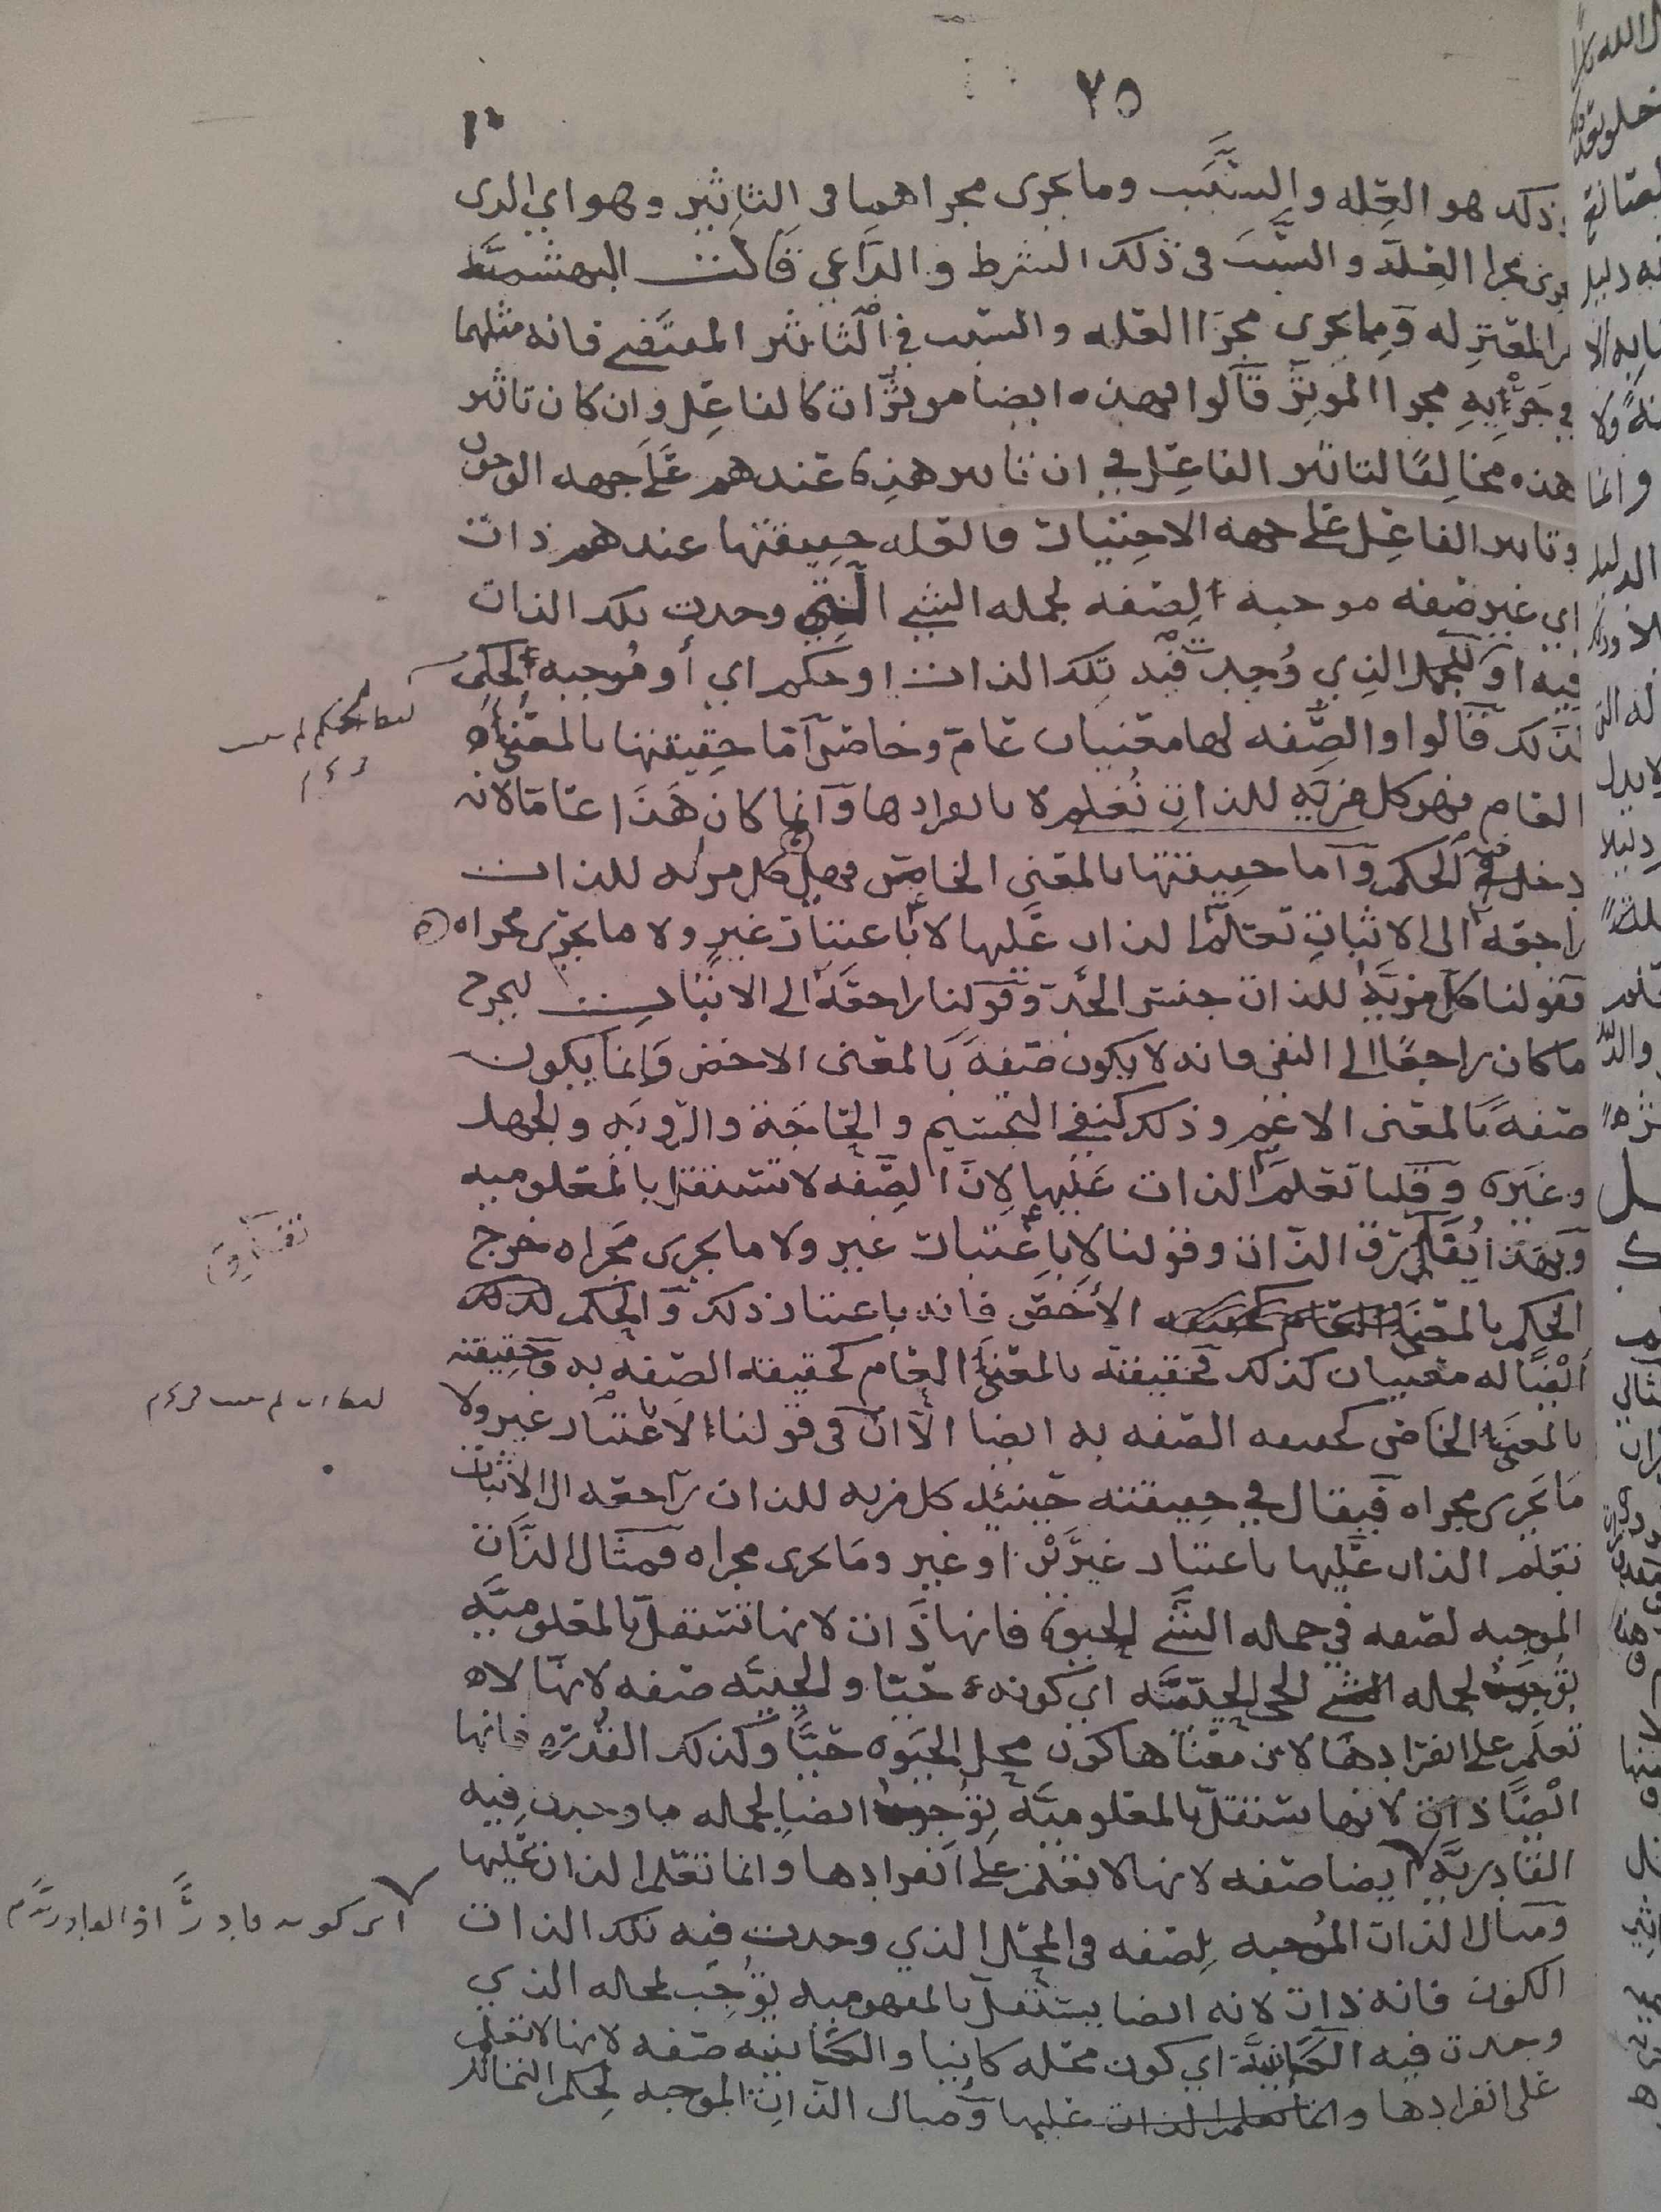 ٢٥
وذلك هو العله والسبب وما يجرى مجراهما فى التاثير وهو اي الذي
يجرى مجرا العلة والسبب فى ذلك الشرط والداعي قالت البهشميه
من المعتزله ومما يجرى مجرا العله والسبب في التاثير المقتضي فانه مثلهما
في جريه مجرا الموثر قالوا فهذه ايضا موثرات كالفاعل وان كان تاثير
هذه مخالفا لتاثير الفاعل في ان تاثير هذه عندهم على جهه الوجوب
وتاثير الفاعل على جهه الاختيار فالعله حقيقتها عندهم ذات
اي غير صفه موجبه لصفه لجمله الشي التي وجدت تلك الذات
فيه او للمحل الذي وجدت فيه تلك الذات او حكم اي أو موجبه لحكم
لذلك قالوا والصفه لها معنيان عام وخاص اما حقيقتها بالمعنى
العام فهو كل مزيه للذات تعلم لا بانفرادها وانما كان هذا عاما لانه
دخل فيه الحكم واما حقيقتها بالمعنى الخاص فهي كل مزيه للذات
راجعه الى الاثبات تعلم الذات عليها لا باعتبار غير ولا ما يجرى مجراه
فقولنا كل مزية للذات جنس الحد وقولنا راجعة الى الاثبات ليخرج
ما كان راجعا الى النفي فانه لا يكون صفة بالمعنى الاخص وانما يكون
صفة بالمعنى الاعم وذلك كنفي التجسيم والحاجة والرويه والجهل
وغيره وقلنا تعلم الذات عليها لان الصفه لا تستقل بالمعلوميه
وبهذا يفارق الذات وقولنا لا باعتبار غير ولا ما يجرى مجراه خرج
الحكم بالمعنى الأخص فانه باعتبار ذلك والحكم لذلك
ايضا له معنيان كذلك فحقيقته بالمعنى العام كحقيقه الصفه به وحقيقته
بالمعنى الخاص كحقيقه الصفه به ايضا الا ان فى قولنا لا باعتبار غير ولا
ما يجرى مجراه فيقال في حقيقته حينئذ كل مزيه للذات راجعه الى الاثبات
تعلم الذات عليها باعتبار غيرين او غير وما يجرى مجراه فمثال الذات
الموجبه لصفه في جمله الشي الحيوة فانها ذات لانها تستقل بالمعلوميه
توجب لجمله الحي الحييه اي كونه حيا والحييه صفه لانها لا
تعلم على انفرادها لان معناها كون محل الحيوه حيا وكذلك القدره فانها
ايضا ذات لانها تستقل بالمعلوميه توجب ايضا لجمله ما وجدت فيه
القادريه ايضا صفه لانها لا تعلم على انفرادها وانما تعلم الذات عليها
ومثال الذات الموجبه لصفه فى المحل الذي وجدت فيه تلك الذات
الكون فانه ذات لانه ايضا يستقل بالمفهوميه يوجب لمحله الذي
وجدت فيه الكائنية اي كون محله كائنا والكائنيه صفه لانها لا تعلم
على انفرادها وانما تعلم الذات عليها ومثال الذات الموجبه لحكم
اي كونه قادرا اذ القادرية